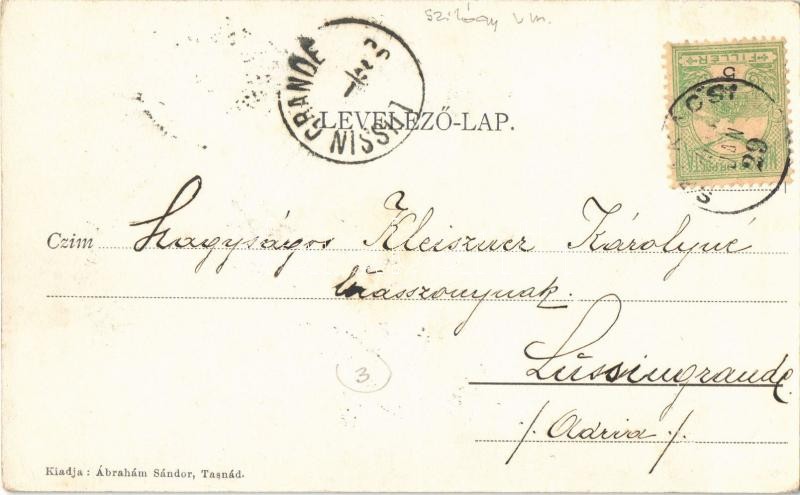 Szilágy vm.
LUSSINGRANDE
FILLÉR
29
LEVELEZŐ-LAP.
Czim Nagyságos Kleiszner Károlyné
úrasszonynak.
Lussingrande.
/. Adria ./.
3
Kiadja : Ábrahám Sándor, Tasnád.